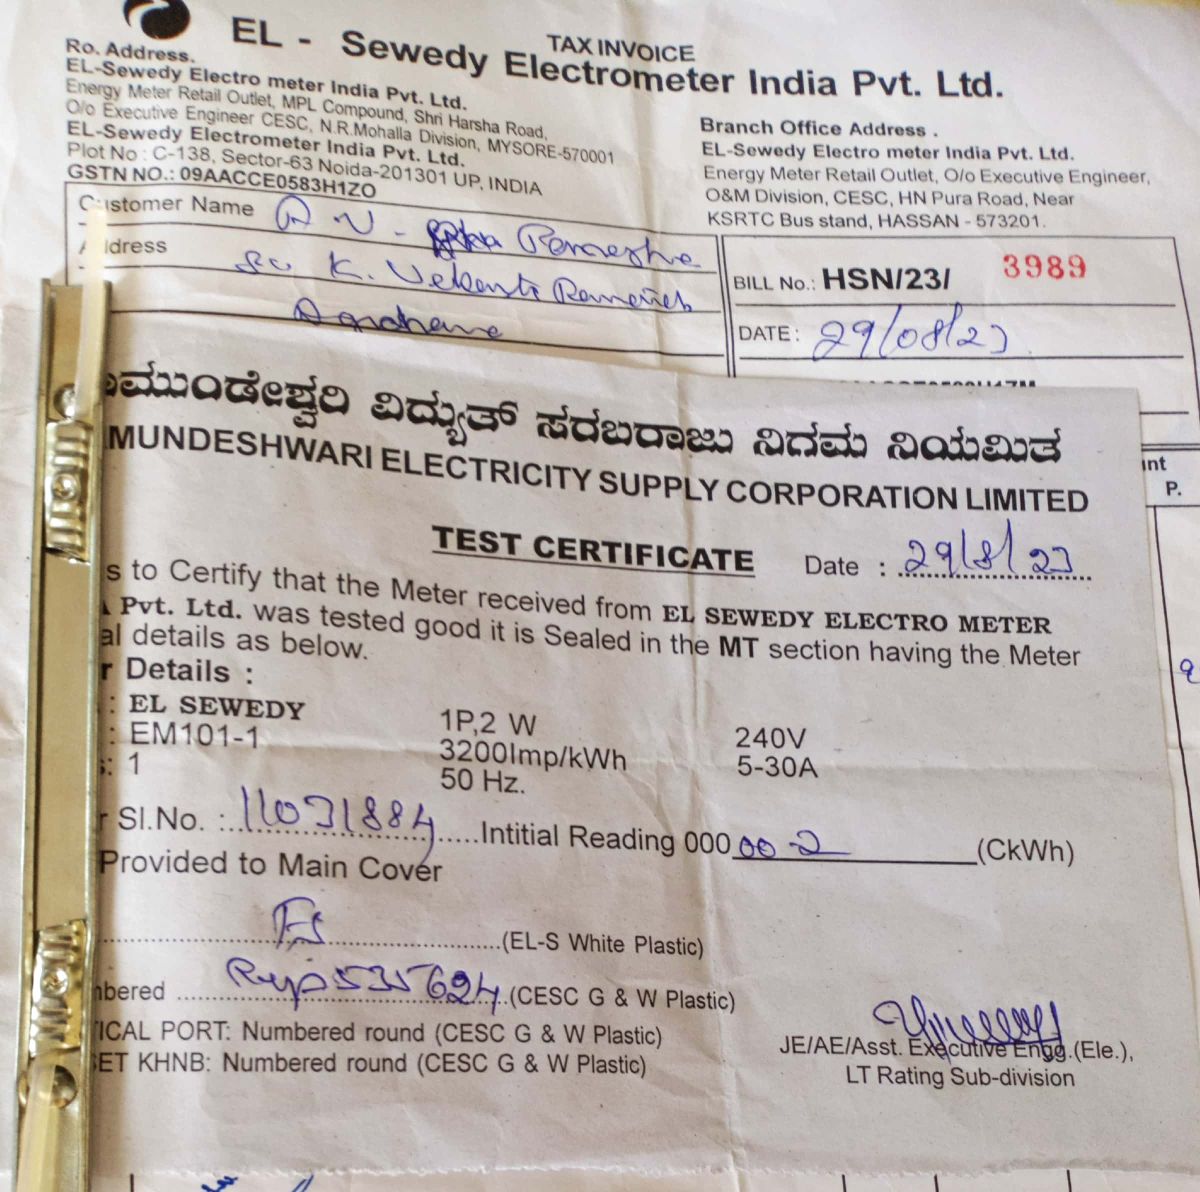 TAX INVOICE
EL - Sewedy Electrometer India Pvt. Ltd.
Ro. Address.
EL-Sewedy Electro meter India Pvt. Ltd.
Energy Meter Retail Outlet, MPL Compound, Shri Harsha Road,
O/o Executive Engineer CESC, N.R.Mohalla Division, MYSORE-570001
EL-Sewedy Electrometer India Pvt. Ltd.
Plot No : C-138, Sector-63 Noida-201301 UP, INDIA
GSTN NO.: 09AACCE0583H1ZO
Branch Office Address .
EL-Sewedy Electro meter India Pvt. Ltd.
Energy Meter Retail Outlet, O/o Executive Engineer,
O&M Division, CESC, HN Pura Road, Near
KSRTC Bus stand, HASSAN - 573201.
Customer Name
Address
K.
BILL No.: HSN/23/ 3989
DATE : 29/08/23
P.
ಮುಂಡೇಶ್ವರಿ ವಿದ್ಯುತ್ ಸರಬರಾಜು ನಿಗಮ ನಿಯಮಿತ
MUNDESHWARI ELECTRICITY SUPPLY CORPORATION LIMITED
TEST CERTIFICATE Date : 29/8/23
s to Certify that the Meter received from EL SEWEDY ELECTRO METER
Pvt. Ltd. was tested good it is Sealed in the MT section having the Meter
al details as below.
r Details :
: EL SEWEDY 1P,2 W 240V
: EM101-1 3200Imp/kWh 5-30A
: 1 50 Hz.
r Sl.No. : 11031884 Intitial Reading 000 00 2 (CkWh)
Provided to Main Cover
(EL-S White Plastic)
bered 535624 (CESC G & W Plastic)
ICAL PORT: Numbered round (CESC G & W Plastic)
ET KHNB: Numbered round (CESC G & W Plastic)
JE/AE/Asst. Executive Engg.(Ele.),
LT Rating Sub-division